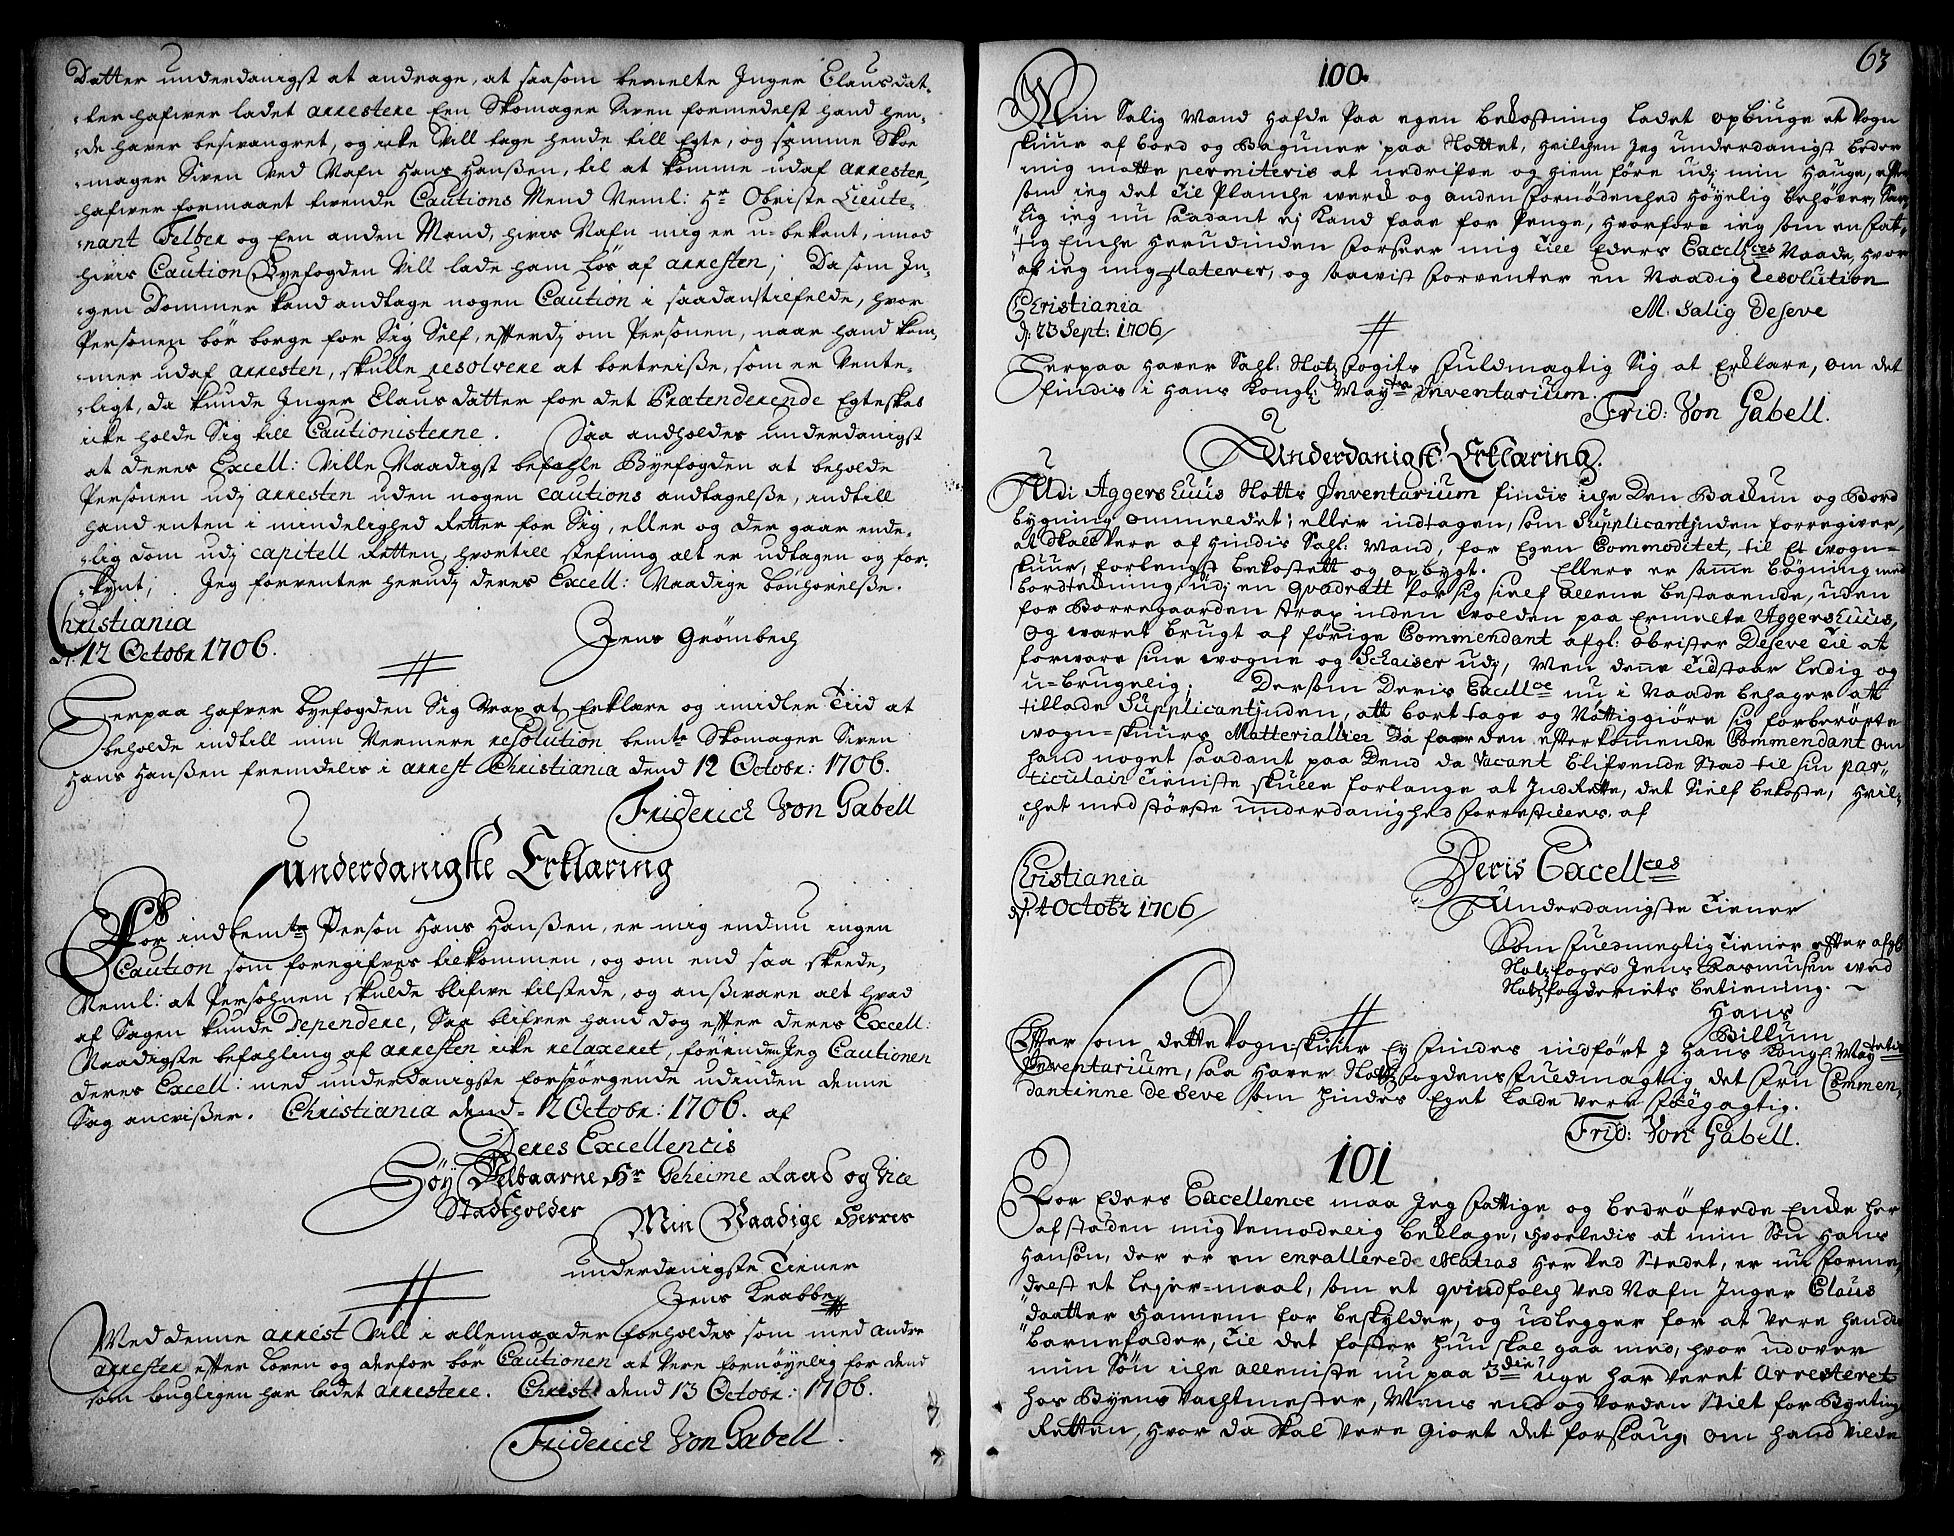 Datter underdanigst at andrage, at saasom bemelte Inger Clausdat-
:ter hafver ladet arrestere Een Skomager Sven formedelst hand hen-
:de haver besvangret, og icke vill tage hende till Egte, og samme Skoe
:mager Sven ved Nafn Hans Hanßen, til at komme udaf arresten,
hafver formaaet tvende Cautions Mend Neml: Hr Obriste Lieute-
:nant Felber og Een anden Mand, hvis Nafn mig er u-bekant, imod
hvis Caution Byefogden vill lade ham løs af arresten; Da som In-
:gen Dommer kand andtage nogen Caution i saadanstilfelde, hvor
Personen bør borge for Sig Self, efterdj om Personen, naar hand kom-
:mer udaf arresten, skulle resolvere at bortreiße, som er vente-
:ligt, da kunde Inger Clausdatter for det Prætenderende Egteskab
icke holde Sig till Cautionisterne. Saa andholdes underdanigst
at deres Excell: ville Naadigst befahle Byefogden at beholde
Personen udj arresten uden nogen cautions andtagelße, indtill
hand enten i mindelighed Retter for Sig, eller og der gaar ende-
:lig dom udj capitell Retten, hvortill stefning alt er udtagen og for-
:kynt; Jeg forventer herudj deres Excell: Naadige bønhørelße.
Christiania
d. 12 Octobr. 1706.
Jens Grømbech
Herpaa hafver byefogden Sig strax at Erklære og imidler Tiid at
beholde indtill min Nermere resolution bemte Skomager Sven
Hans Hanßen fremdelis i arrest Christiania dend 12 Octobr: 1706.
Friderich Von Gabell
Underdanigste Erklaring
For indbemte Person Hans Hanßen, er mig endnu ingen
Caution som foregifves tilkommen, og om end saa skeede,
Neml: at Persohnen skulde blifve tilstede, og anßvare alt hvad
af Sagen kunde Dependere, Saa blifver hand dog efter deres Excell:
Naadigste befahling af arresten icke relaxeret, førend Jeg Cautionen
deres Excell: med underdanigste forspørgende udinden denne
Sag anvißer. Christiania dend 12 Octobr: 1706. af
Deres Excellencis
Høy Velbaarne Hr Geheime Raad og Vice
Stadtholder
Min Naadige Herris
underdanigste Tiener
Jens Krabbe
Med denne arrést vill i allemaader forholdes som med andre
arrester efter Loven og derfor bør Cautionen at være fornøyelig for dend
som lougligen har ladet arrestere. Christ: dend 13 Octobr: 1706.
Friderich Von Gabell.
63
100.
Min Salig Mand hafde paa egen bekostning ladet opbiuge et vogn
skuur af bord og Baguner paa Slottet, hvilchen Jeg underdanigst beder
mig motte permiteris at nedrifve og hiem føre udj min Hauge, efter
som jeg det til Planche werck og anden fornødenhed høyelig behøver, Sær-
lig ieg nu saadant ej kand faae for Penge, hvorfore ieg som en fat-
tig Enche herudinden forseer mig till Eders Excellces Naade, hvor
af ieg mig flaterer, og saavist forventer en Naadig resolution
Christiania
d. 23 Sept: 1706
M. Salig DeSeve
Herpaa haver Sahl: Slotzfogits fuldmagtig Sig at Erklære, om det
findis i Hans Kongl: Maytz Inventarium.
Frid: Von Gabell.
Underdanigst Erklæring.
Udi Aggershuus Slotts Inventarium findis iche Den Backun og Bord
bygning ommeldet, eller indtagen, som Supplicantjnden forregiver,
at skal vere af hindis Sahl: Mand, for Egen Commoditet, til Et wogn-
skuur, forlengst bekostett og opbygt. Ellers er samme bögning med
bordtekning udj en qvadratt for sig sielf allene bestaaende, uden
for Borregaarden strax inden wolden paa Ermelte Aggershuus,
og waret brugt af förige Commendant afgl: obrister DeSeve til at
forware sine wogne og Schaiser udj, Men denne Tid staar ledig og
u-brugelig. Dersom Deris Excellce nu i Naade behager att
tillade Supplicantjnden, att bort tage og Nöttiggiöre sig forberörte
wogn-skuurs Matterialier Da faar den efterkomende Commendant om
hand noget saadant paa Dend da vacant blifvende Stad til sin par-
ticulair tieniste skulle forlange at Jndrette, det Sielf bekoste, Hvil-
chet med störste underdanighed forrestilles af
Christiania
d. 4 Octobr 1706
Deris Excellces
Underdanigste Tiener
Som fuldmegtig tiener efter afgl:
Slotzfoged Jens Rasmusen wed
Slotzfogderiets betiening.
Hans
Billum
Efter som dette Vognskuur Ey findes indfört J Hans Kongl: Maytetz
Inventarium, saa haver Slotzfogdens fuldmagtig det fru Commen-
dantinne DeSeve som hindes Eget lade vere følgagtig.
Frid: Von Gabell.
101
For Eders Excellence maa Jeg fattige og bedröfvede Encke her
af stæden mig vemodelig beklage, hvorledis at min Sön Hans
Hansøn, der er en enrallered Matros her ved Stedet, er nu forme-
delst et lejer-maal, som et qvindfolch ved Nafn Inger Claus
daatter hannem for beskylder, og udlegger for at vere hendes
barnefader, til det foster hun skal gaa med, hvor udover
min Søn iche alleniste nu paa 3die uge har veret Arresteret
hos Byens Vachtmester, Mens end og vorden Stilt for Byeting
Retten, hvor da skal vere giort det forslaug, om hand vilde